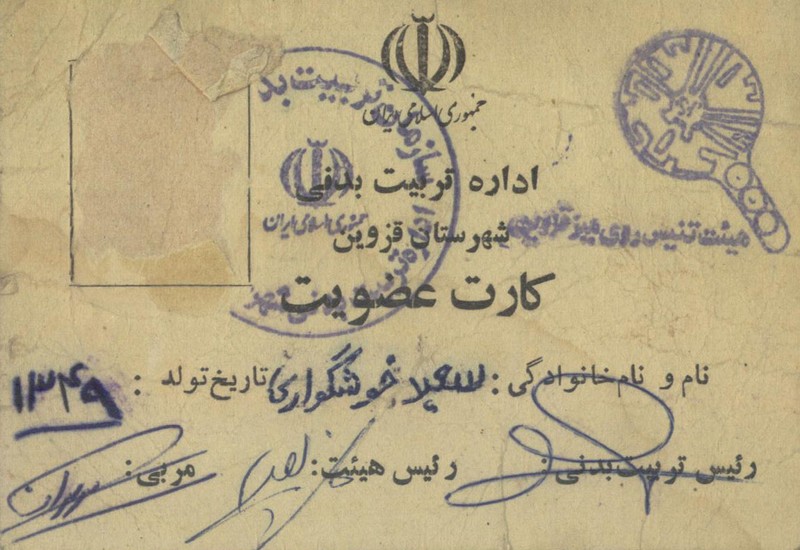 جمهوری اسلامی ایران
اداره تربیت بدنی
شهرستان قزوین
کارت عضویت
هیئت تنیس روی میز قزوین
جمهوری اسلامی ایران
نام و نام خانوادگی: سعید خوشگواری تاریخ تولد: ۱۳۴۹
رئیس تربیت بدنی: رئیس هیئت: مربی: